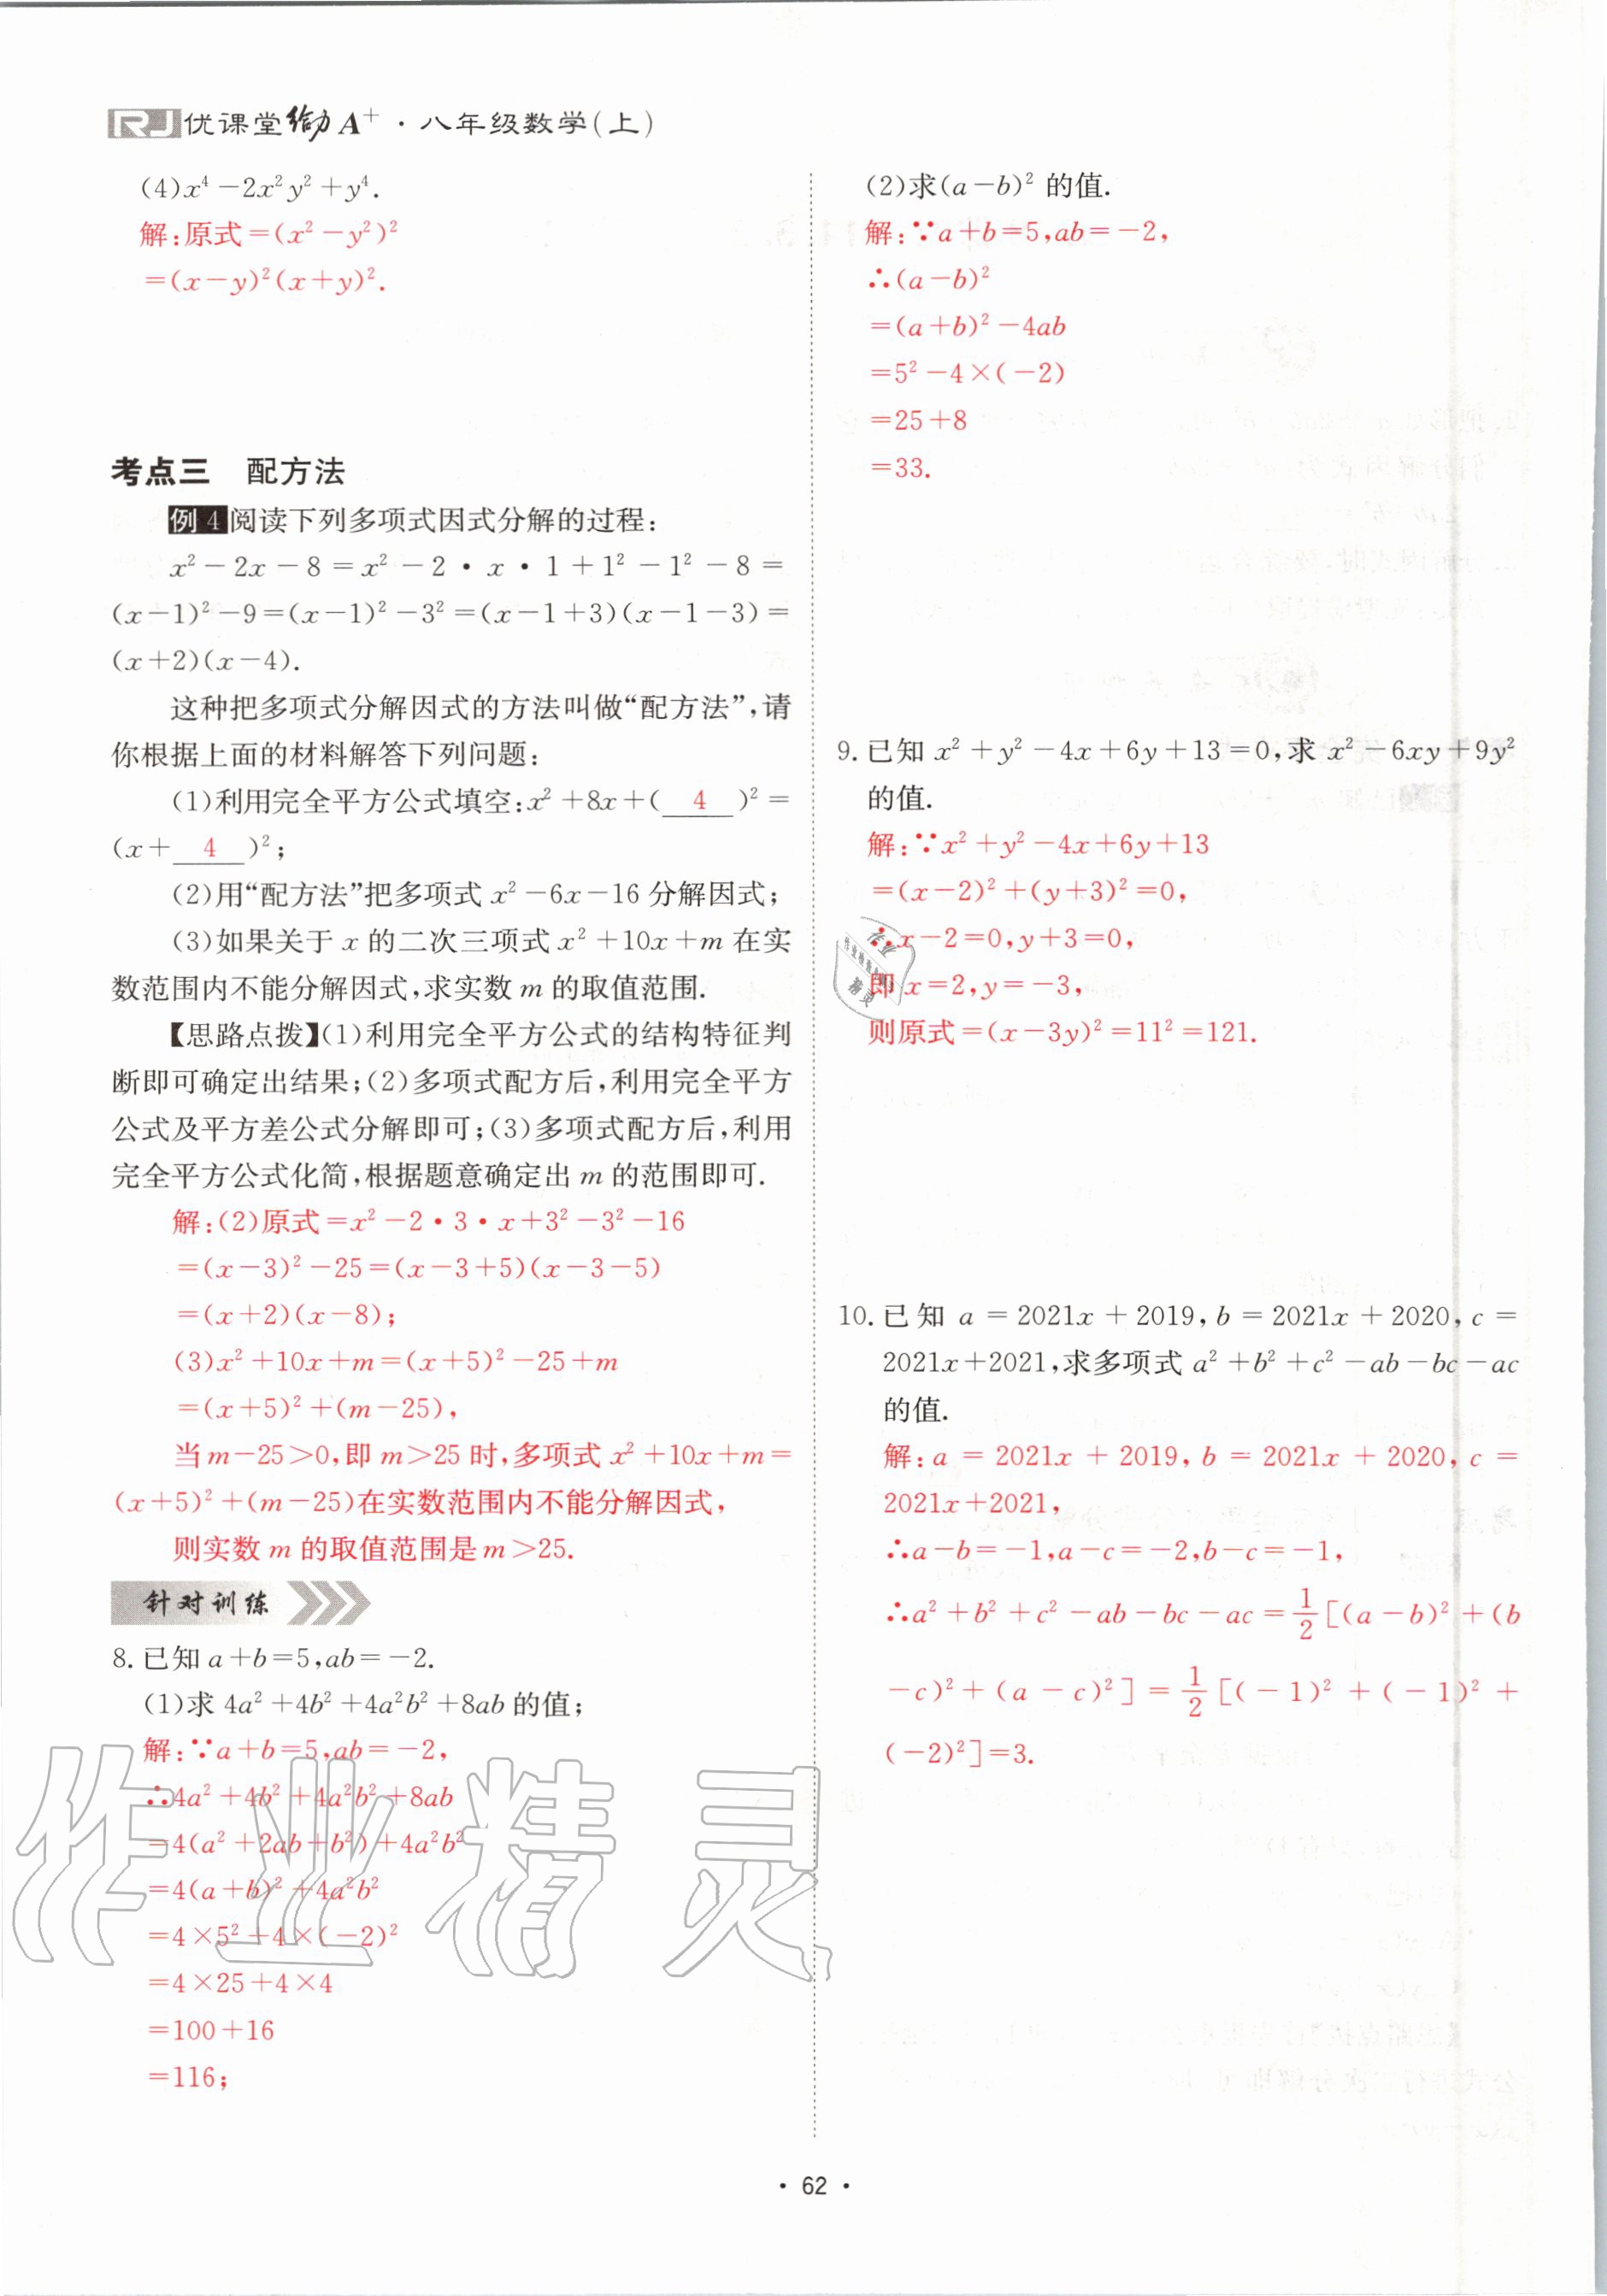 RJ优课堂给力A⁺·八年级数学(上)
(4)x⁴-2x²y²+y⁴.
解:原式=(x²-y²)²
=(x-y)²(x+y)².
考点三 配方法
例4 阅读下列多项式因式分解的过程:
x²-2x-8=x²-2·x·1+1²-1²-8=
(x-1)²-9=(x-1)²-3²=(x-1+3)(x-1-3)=
(x+2)(x-4).
这种把多项式分解因式的方法叫做“配方法”,请
你根据上面的材料解答下列问题:
(1)利用完全平方公式填空:x²+8x+( 4 )²=
(x+ 4 )²;
(2)用“配方法”把多项式 x²-6x-16 分解因式;
(3)如果关于 x 的二次三项式 x²+10x+m 在实
数范围内不能分解因式,求实数 m 的取值范围.
【思路点拨】(1)利用完全平方公式的结构特征判
断即可确定出结果;(2)多项式配方后,利用完全平方
公式及平方差公式分解即可;(3)多项式配方后,利用
完全平方公式化简,根据题意确定出 m 的范围即可.
解:(2)原式=x²-2·3·x+3²-3²-16
=(x-3)²-25=(x-3+5)(x-3-5)
=(x+2)(x-8);
(3)x²+10x+m=(x+5)²-25+m
=(x+5)²+(m-25),
当m-25>0,即 m>25 时,多项式 x²+10x+m=
(x+5)²+(m-25)在实数范围内不能分解因式,
则实数 m 的取值范围是m>25.
针对训练
8.已知a+b=5,ab=-2.
(1)求 4a²+4b²+4a²b²+8ab的值;
解:∵a+b=5,ab=-2,
∴4a²+4b²+4a²b²+8ab
=4(a²+2ab+b²)+4a²b²
=4(a+b)²+4a²b²
=4×5²+4×(-2)²
=4×25+4×4
=100+16
=116;
(2)求(a-b)² 的值.
解:∵a+b=5,ab=-2,
∴(a-b)²
=(a+b)²-4ab
=5²-4×(-2)
=25+8
=33.
9.已知 x²+y²-4x+6y+13=0,求 x²-6xy+9y²
的值.
解:∵x²+y²-4x+6y+13
=(x-2)²+(y+3)²=0,
∴x-2=0,y+3=0,
即 x=2,y=-3,
则原式=(x-3y)²=11²=121.
10.已知 a=2021x+2019,b=2021x+2020,c=
2021x+2021,求多项式 a²+b²+c²-ab-bc-ac
的值.
解:a=2021x+2019,b=2021x+2020,c=
2021x+2021,
∴a-b=-1,a-c=-2,b-c=-1,
∴a²+b²+c²-ab-bc-ac=1/2[(a-b)²+(b
-c)²+(a-c)²]=1/2[(-1)²+(-1)²+
(-2)²]=3.
作业精灵
·62·